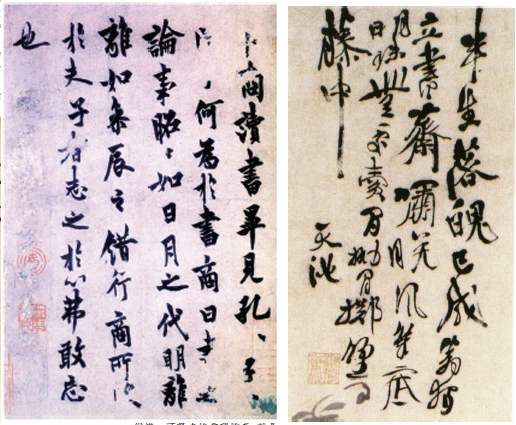 半生落魄已成翁獨
立書齋嘯晚風筆底
明珠無處賣閒拋閒擲野
藤中
天池
卜商讀書畢見孔〻子〻
問〻何為於書商曰書之
論事昭〻如日月之代明離
離如參辰之錯行商所受
於夫子者志之於心弗敢忘
也